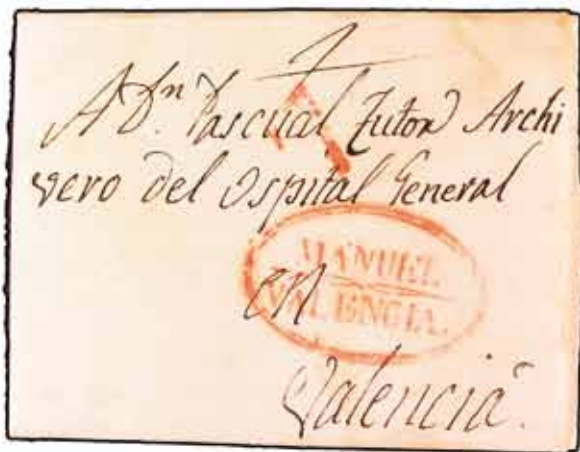 A Dn. Pascual Tutor Archi
vero del Ospital General
MANUEL
en
VALENCIA.
Valencia.